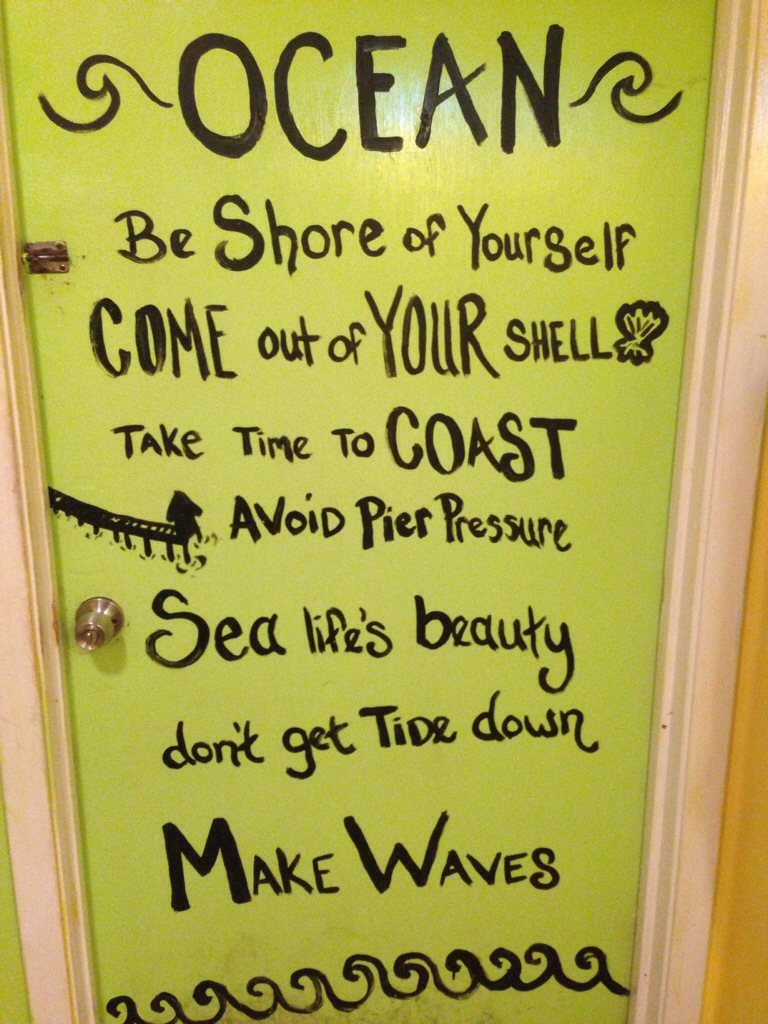 OCEAN
Be Shore of Yourself
COME out of YOUR SHELL
TAKE Time To COAST
AVOiD Pier Pressure
Sea life's beauty
don't get TiDe down
MAKE WAVES